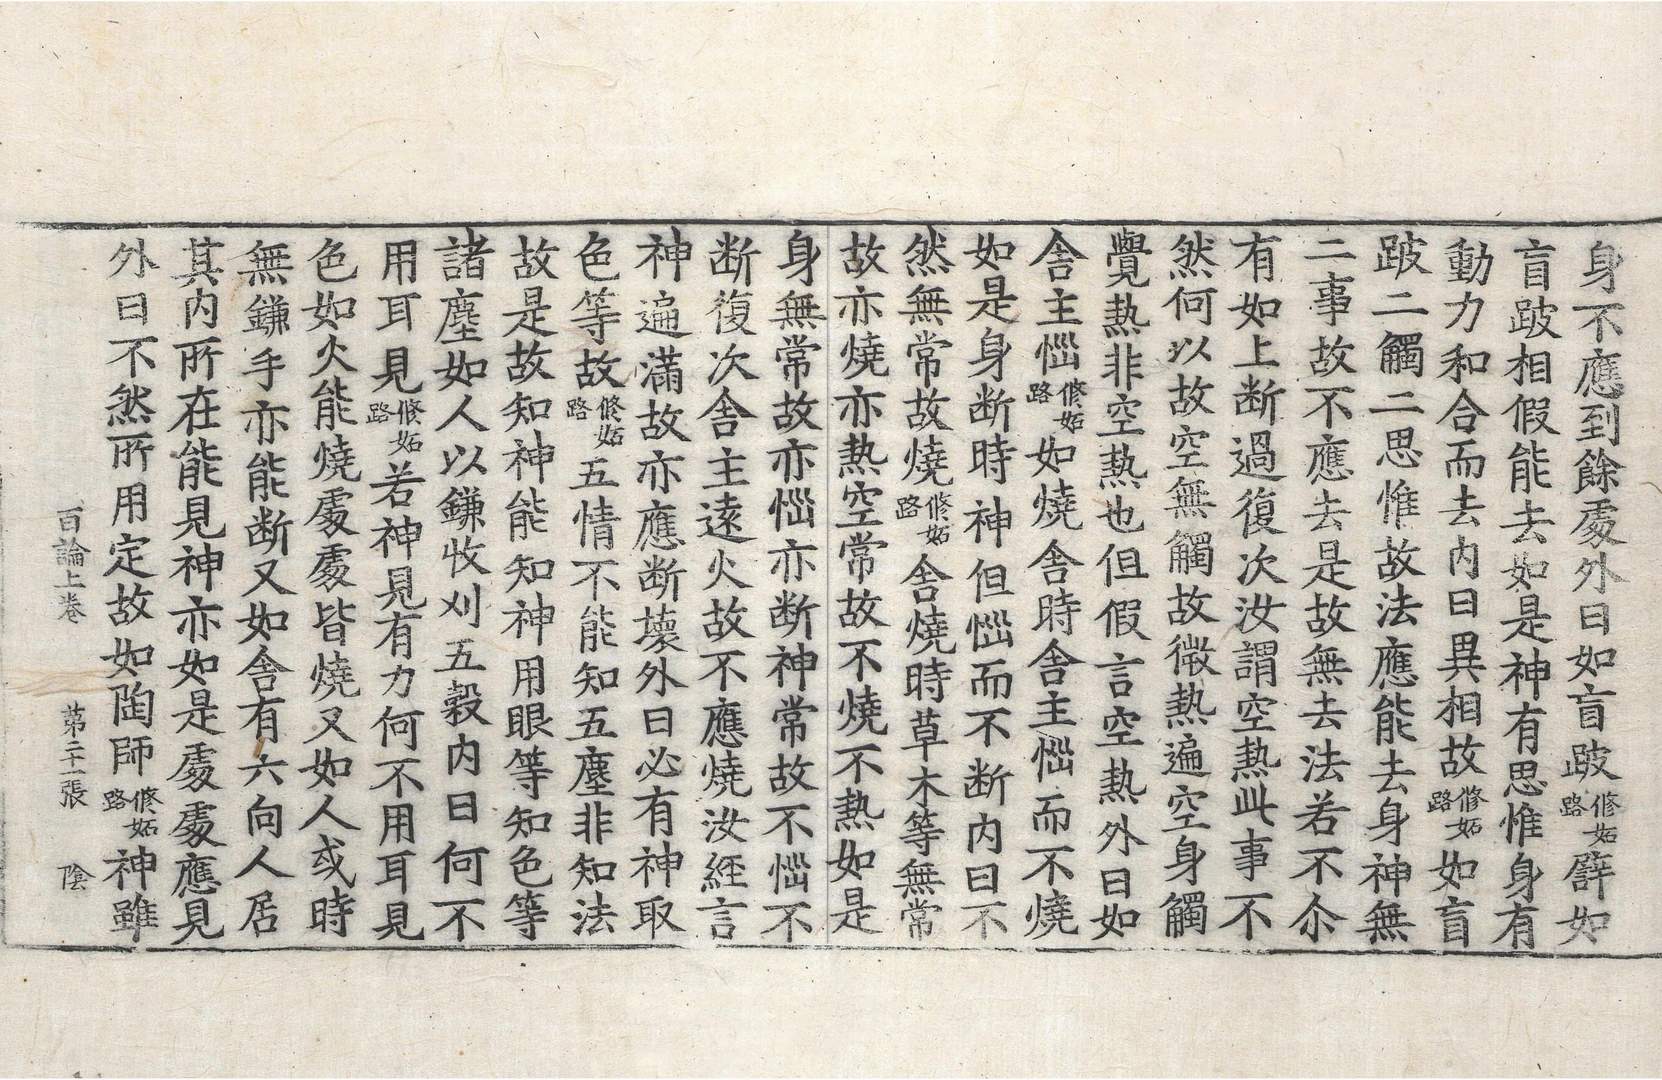 身不應到餘處外曰如盲跛修妬路譬如
盲跛相假能去如是神有思惟身有
動力和合而去内曰異相故修妬路如盲
跛二觸二思惟故法應能去身神無
二事故不應去是故無去法若不尒
有如上断過復次汝謂空熱此事不
然何以故空無觸故微熱遍空身觸
覺熱非空熱也但假言空熱外曰如
舍主惱修妬路如燒舍時舍主惱而不燒
如是身断時神但惱而不断内曰不
然無常故燒修妬路舍燒時草木等無常
故亦燒亦熱空常故不燒不熱如是
身無常故亦惱亦断神常故不惱不
断復次舍主遠火故不應燒汝經言
神遍滿故亦應断壞外曰必有神取
色等故修妬路五情不能知五塵非知法
故是故知神能知神用眼等知色等
諸塵如人以鎌收刈五穀内曰何不
用耳見修妬路若神見有力何不用耳見
色如火能燒處處皆燒又如人或時
無鎌手亦能断又如舍有六向人居
其内所在能見神亦如是處處應見
外曰不然所用定故如陶師修妬路神雖
百論上卷　第二十一張　陰